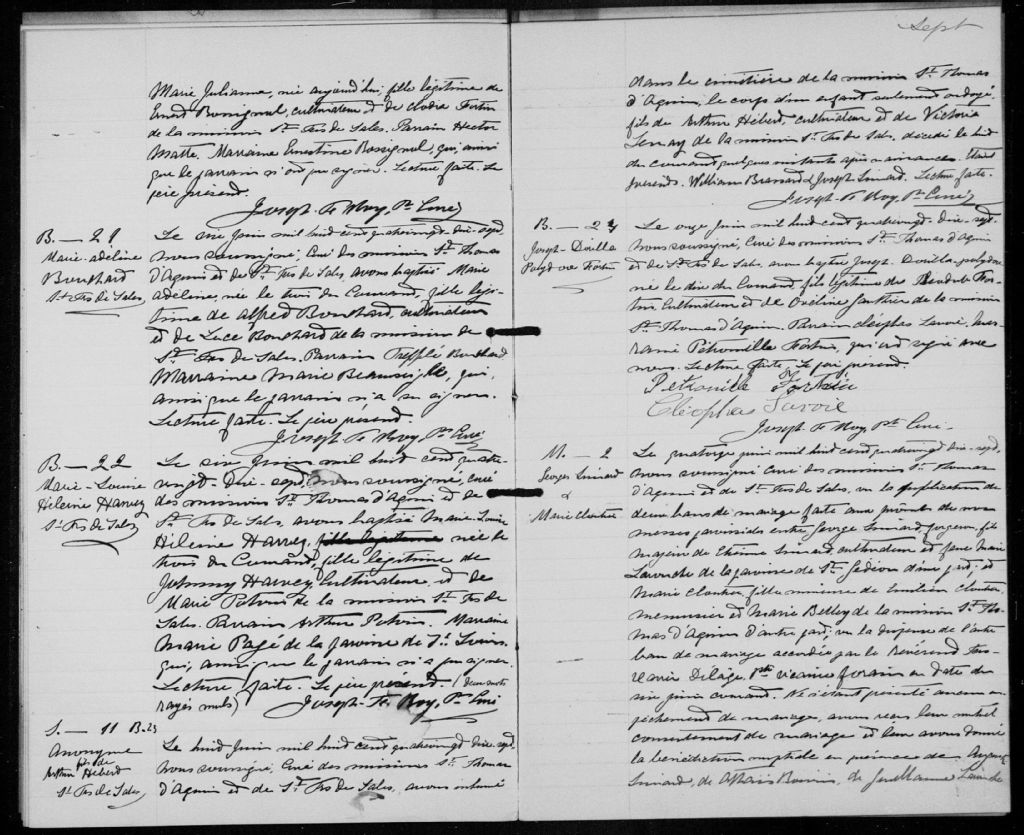 Marie Julianne, née aujourd'hui, fille légitime de
Ernest Rossignol, cultivateur et de Clodia Fortin
de la mission St. Frs de Sales. Parrain Hector
Matte, Marraine Ernestine Rossignol, qui, ainsi
que le parrain n'ont pu signer. Lecture faite. Le
père présent.
Joseph Ths Roy, Ptre Curé
B. — 21
Marie-adéline
Bouchard
St-Frs de Sales
Le six juin mil huit cent quatrevingt-dix-sept
nous soussigné, Curé des missions St. Thomas
d'Aquin et de St. Frs de Sales, avons baptisé Marie
Adéline, née le trois du Courant, fille légi-
time de Alfred Bouchard, cultivateur
et de Luce Bouchard de la mission de
St. Frs de Sales. Parrain Trefflé Bouchard
Marraine Marie qui,
ainsi que le parrain n'a su signer.
Lecture faite. Le père présent.
Joseph Ths Roy, Ptre Curé
B. — 22
Marie-Louise
Héleine Harvey
St-Frs de Sales
Le six Juin mil huit cent quatre-
vingt-dix-sept, nous soussigné, curé
des missions St. Thomas d'Aquin et de
St. Frs de Sales, avons baptisé Marie-Louise
Héleine Harvey, fille légitime née le
trois du Courant, fille légitime de
Johnny Harvey, Cultivateur et de
Marie Potvin de la mission St. Frs de
Sales. Parrain Arthur Potvin. Marraine
Marie Pagé de la paroisse de
qui, ainsi que le parrain n'a pu signer.
Lecture faite. Le père présent. (deux mots
rayés nuls)
Joseph-Ths Roy, Ptre Curé
S. — 11 B.23
Anonyme
fils de
Arthur Hébert
St Frs de Sales
Le huit Juin mil huit cent quatrevingt-dix-sept,
nous soussigné, Curé des missions St. Thomas
d'Aquin et de St. Frs de Sales, avons inhumé
Sept
dans le cimetière de la mission St. Thomas
d'Aquin, le corps d'un enfant seulement ondoyé,
fils de Arthur Hébert, cultivateur et de Victoria
de la mission St. Frs de Sales, décédé le huit
du courant quelques instants après naissance. Etaient
présents. William Brassard & Joseph Simard. Lecture faite.
Joseph Ths Roy, Ptre Curé
B. — 24
Joseph-Dorilla
Polydore Fortin
Le onze Juin mil huit cent quatrevingt-dix-sept
nous soussigné, Curé des missions St. Thomas d'Aquin
et de St. Frs de Sales, avons baptisé Joseph-Dorilla-polydore
né le dix du Courant, fils légitime de For-
tin, Cultivateur et de Gauthier de la mission
St. Thomas d'Aquin. Parrain Cléophas Savoie, Mar-
raine Pétronille Fortin, qui ont signé avec
nous. Lecture faite. Le père présent.
Pétronille Fortin
Cléophas Savoie
Joseph Ths Roy, Ptre Curé
M. — 2
Georges Simard
&
Marie Cloutier
Le quatorze juin mil huit cent quatrevingt-dix-sept,
nous soussigné curé des missions St. Thomas
d'Aquin et de St. Frs de Sales, vu la publication de
deux bans de mariage faite aux prônes de nos
messes paroissiales entre George Simard, forgeron, fils
majeur de Etienne Simard, cultivateur et feue Marie
Larouche de la paroisse de St. Gédéon d'une part, et
Marie Cloutier, fille mineure de Cloutier,
menuisier et Marie Belley de la mission St. Tho-
mas d'Aquin d'autre part; vu la dispense de l'autre
ban de mariage accordée par le Révérend
Delâge, Ptre vicaire forain en date du
six juin courant. Ne s'étant présenté aucun em-
pêchement de mariage, avons reçu leur mutuel
consentement de mariage et leur avons donné
la bénédiction nuptiale en présence de
Simard, de de